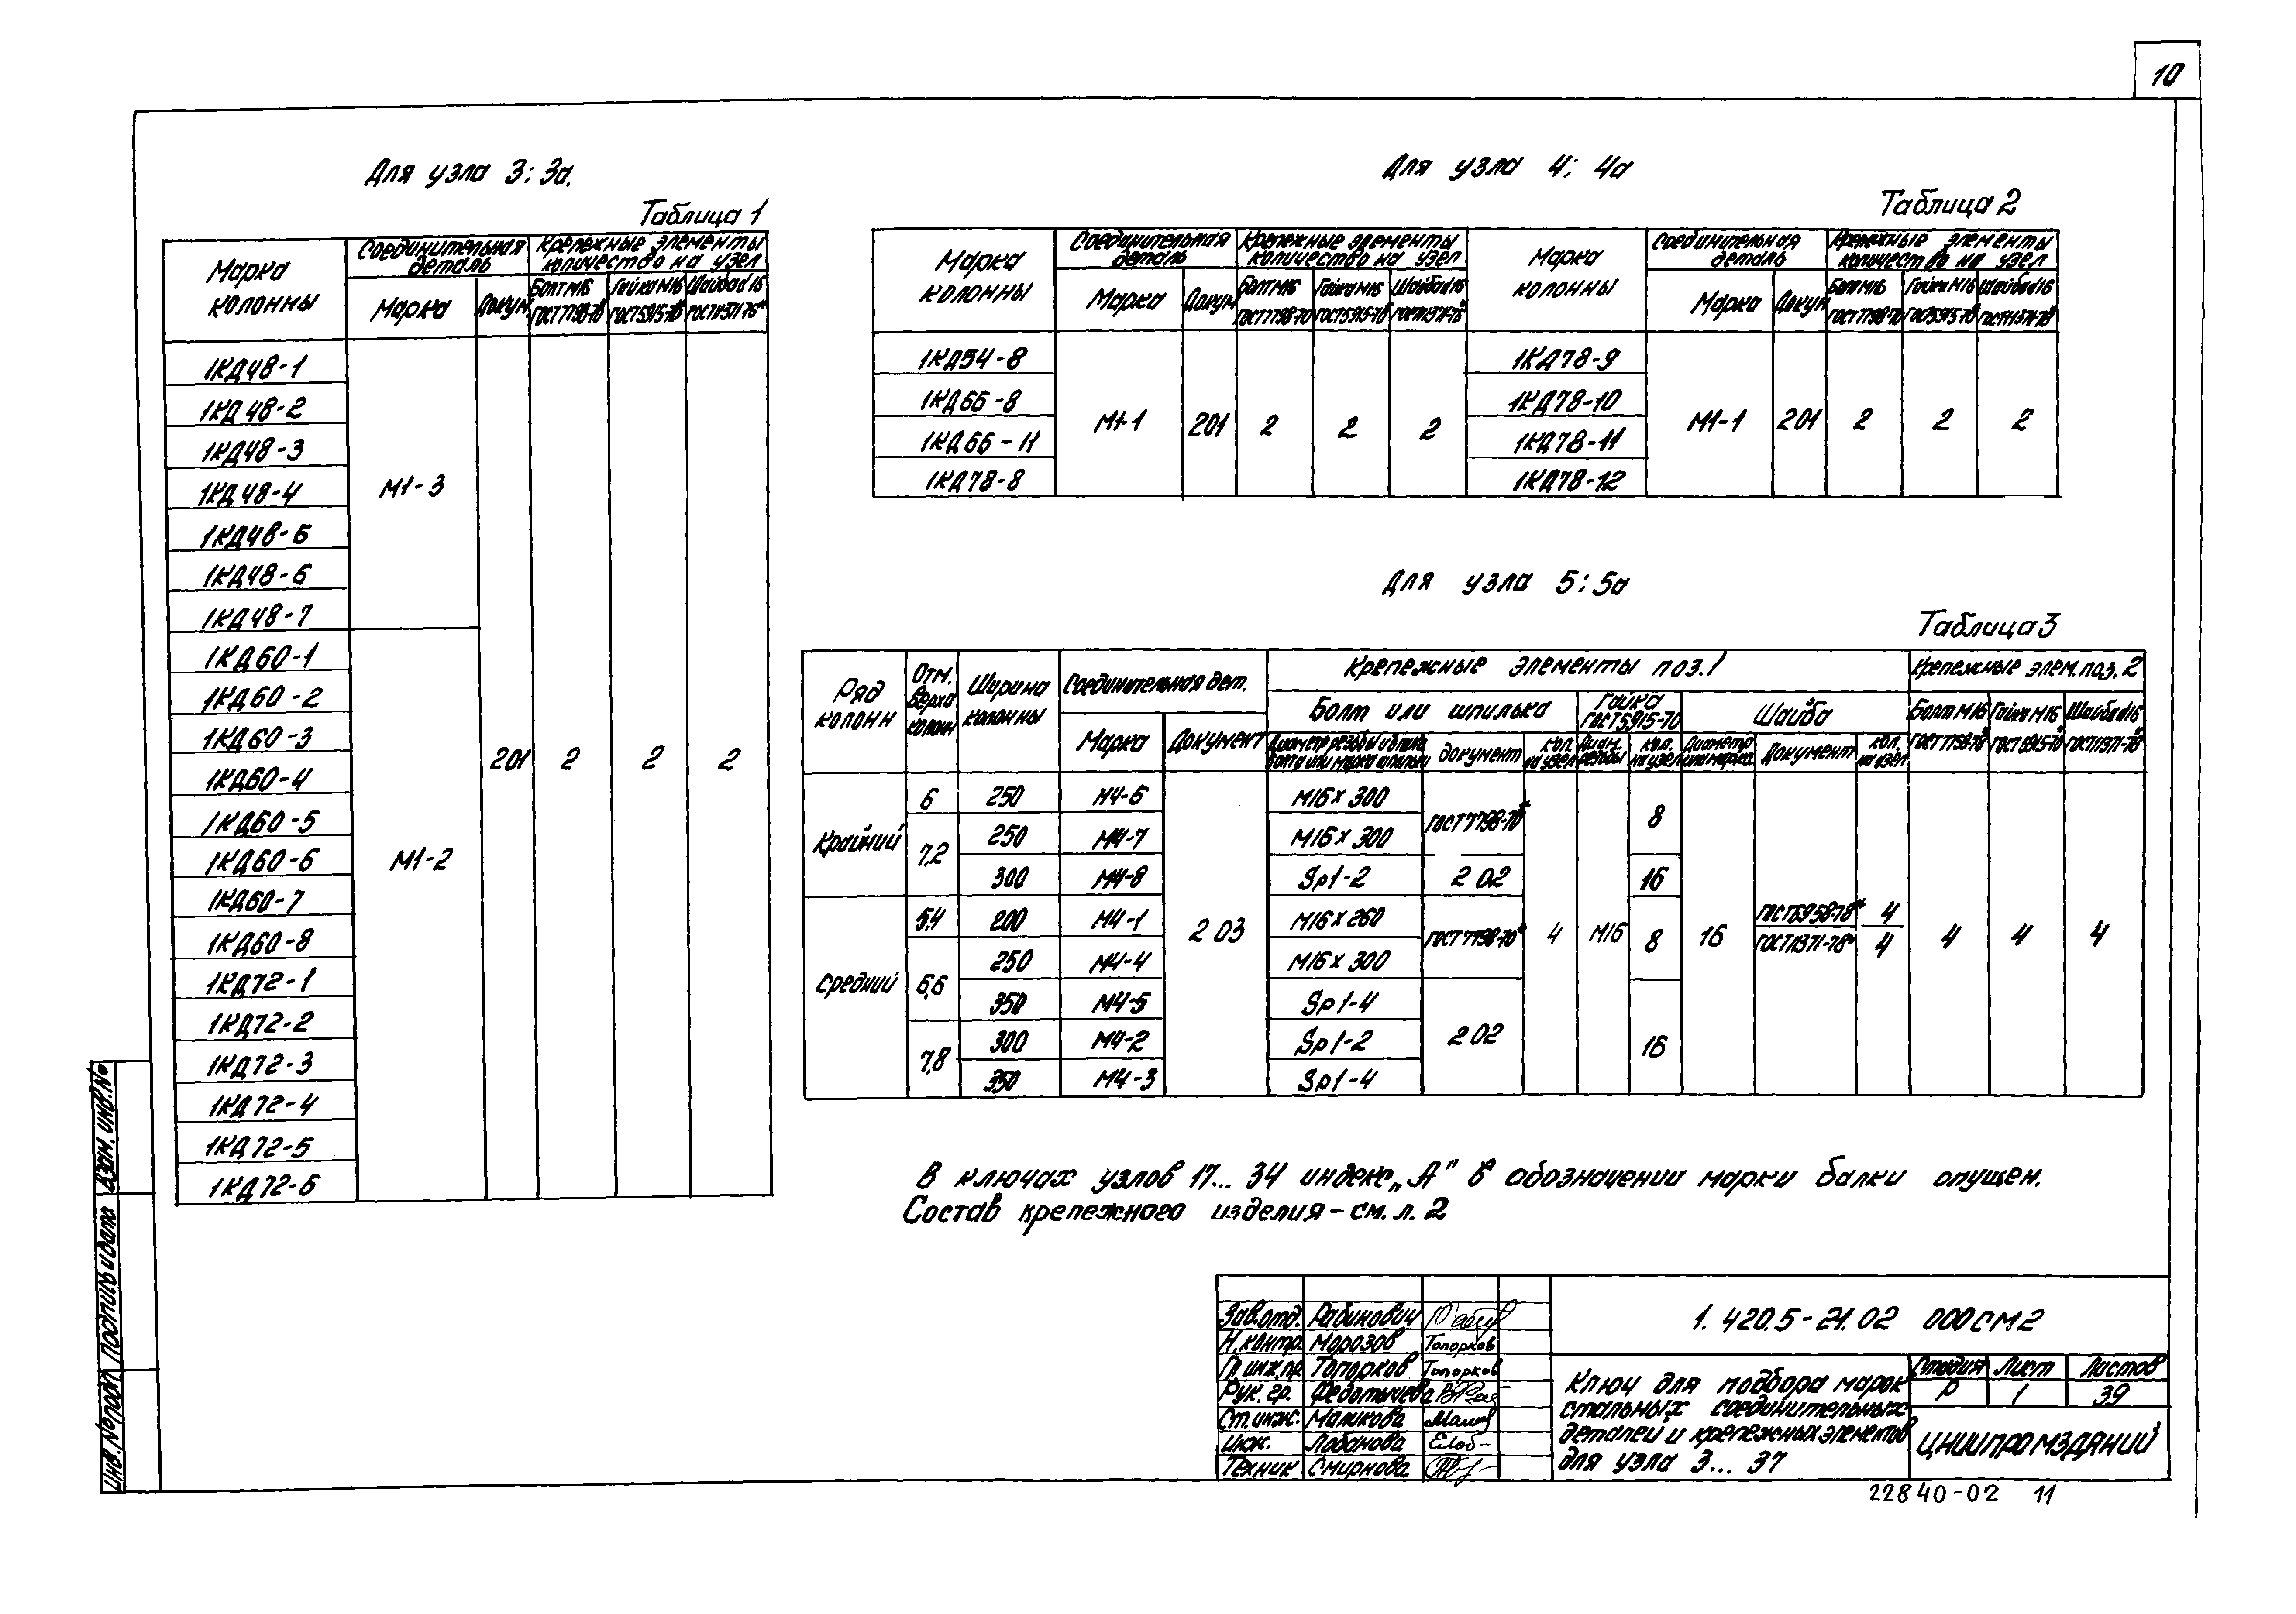 10
Для узла 3; 3а.
Таблица 1
Марка колонны
Соединительная деталь
Крепежные элементы количество на узел
Марка
Докум
Болт М16 ГОСТ 7798-70*
Гайка М16 ГОСТ 5915-70*
Шайба d16 ГОСТ 11371-78*
1КД48-1
1КД48-2
1КД48-3
1КД48-4
М1-3
1КД48-5
1КД48-6
1КД48-7
1КД60-1
1КД60-2
1КД60-3
201 2 2 2
1КД60-4
1КД60-5
1КД60-6
М1-2
1КД60-7
1КД60-8
1КД72-1
1КД72-2
1КД72-3
1КД72-4
1КД72-5
1КД72-6
Для узла 4; 4а
Таблица 2
Марка колонны
Соединительная деталь
Крепежные элементы количество на узел
Марка колонны
Соединительная деталь
Крепежные элементы количество на узел
Марка
Докум
Болт М16 ГОСТ 7798-70
Гайка М16 ГОСТ 5915-70*
Шайба d16 ГОСТ 11371-78*
Марка
Докум
Болт М16 ГОСТ 7798-70
Гайка М16 ГОСТ 5915-70*
Шайба d16 ГОСТ 11371-78*
1КД54-8 1КД78-9
1КД66-8 1КД78-10
М1-1 201 2 2 2 М1-1 201 2 2 2
1КД66-11 1КД78-11
1КД78-8 1КД78-12
Для узла 5; 5а
Таблица 3
Ряд колонн
Отм. верха колонн
Ширина колонны
Соединительная дет.
Крепежные элементы поз. 1
Крепежные элем. поз. 2
Марка
Документ
Болт или шпилька
Гайка ГОСТ 5915-70
Шайба
Болт М16 ГОСТ 7798-70*
Гайка М16 ГОСТ 5915-70*
Шайба d16 ГОСТ 11371-78*
Диаметр резьбы и длина болта или марка шпильки
Документ
Кол. на узел
Диам. резьбы
Кол. на узел
Диаметр или марка
Документ
Кол. на узел
6 250 М4-6 М16 х 300
ГОСТ 7798-70* 8
Крайний 7,2 250 М4-7 М16 х 300
300 М4-8 Sp1-2 202 16
5,4 200 М4-1 М16 х 260
203 ГОСТ 7798-70* 4 М16 8 16 ГОСТ 6958-78* 4 4 4 4
ГОСТ 11371-78* 4
Средний 6,6 250 М4-4 М16 х 300
350 М4-5 Sp1-4
202 16
7,8 300 М4-2 Sp1-2
350 М4-3 Sp1-4
В ключах узлов 17... 34 индекс „А" в обозначении марки балки опущен.
Состав крепежного изделия - см. л. 2
Зав.отд. Рабинович
Н.контр. Морозов Топорков
Гл.инж.пр. Топорков Топорков
Рук. гр. Федотычева
Ст.инж. Маликова
Инж. Лобанова
Техник Смирнова
1. 420.5-21.02 000СМ2
Ключ для подбора марок
стальных соединительных
деталей и крепежных элементов
для узла 3... 37
Стадия Лист Листов
Р 1 39
ЦНИИПРОМЗДАНИЙ
22840-02 11
Взам. инв.№
Подпись и дата
Инв.№ подл